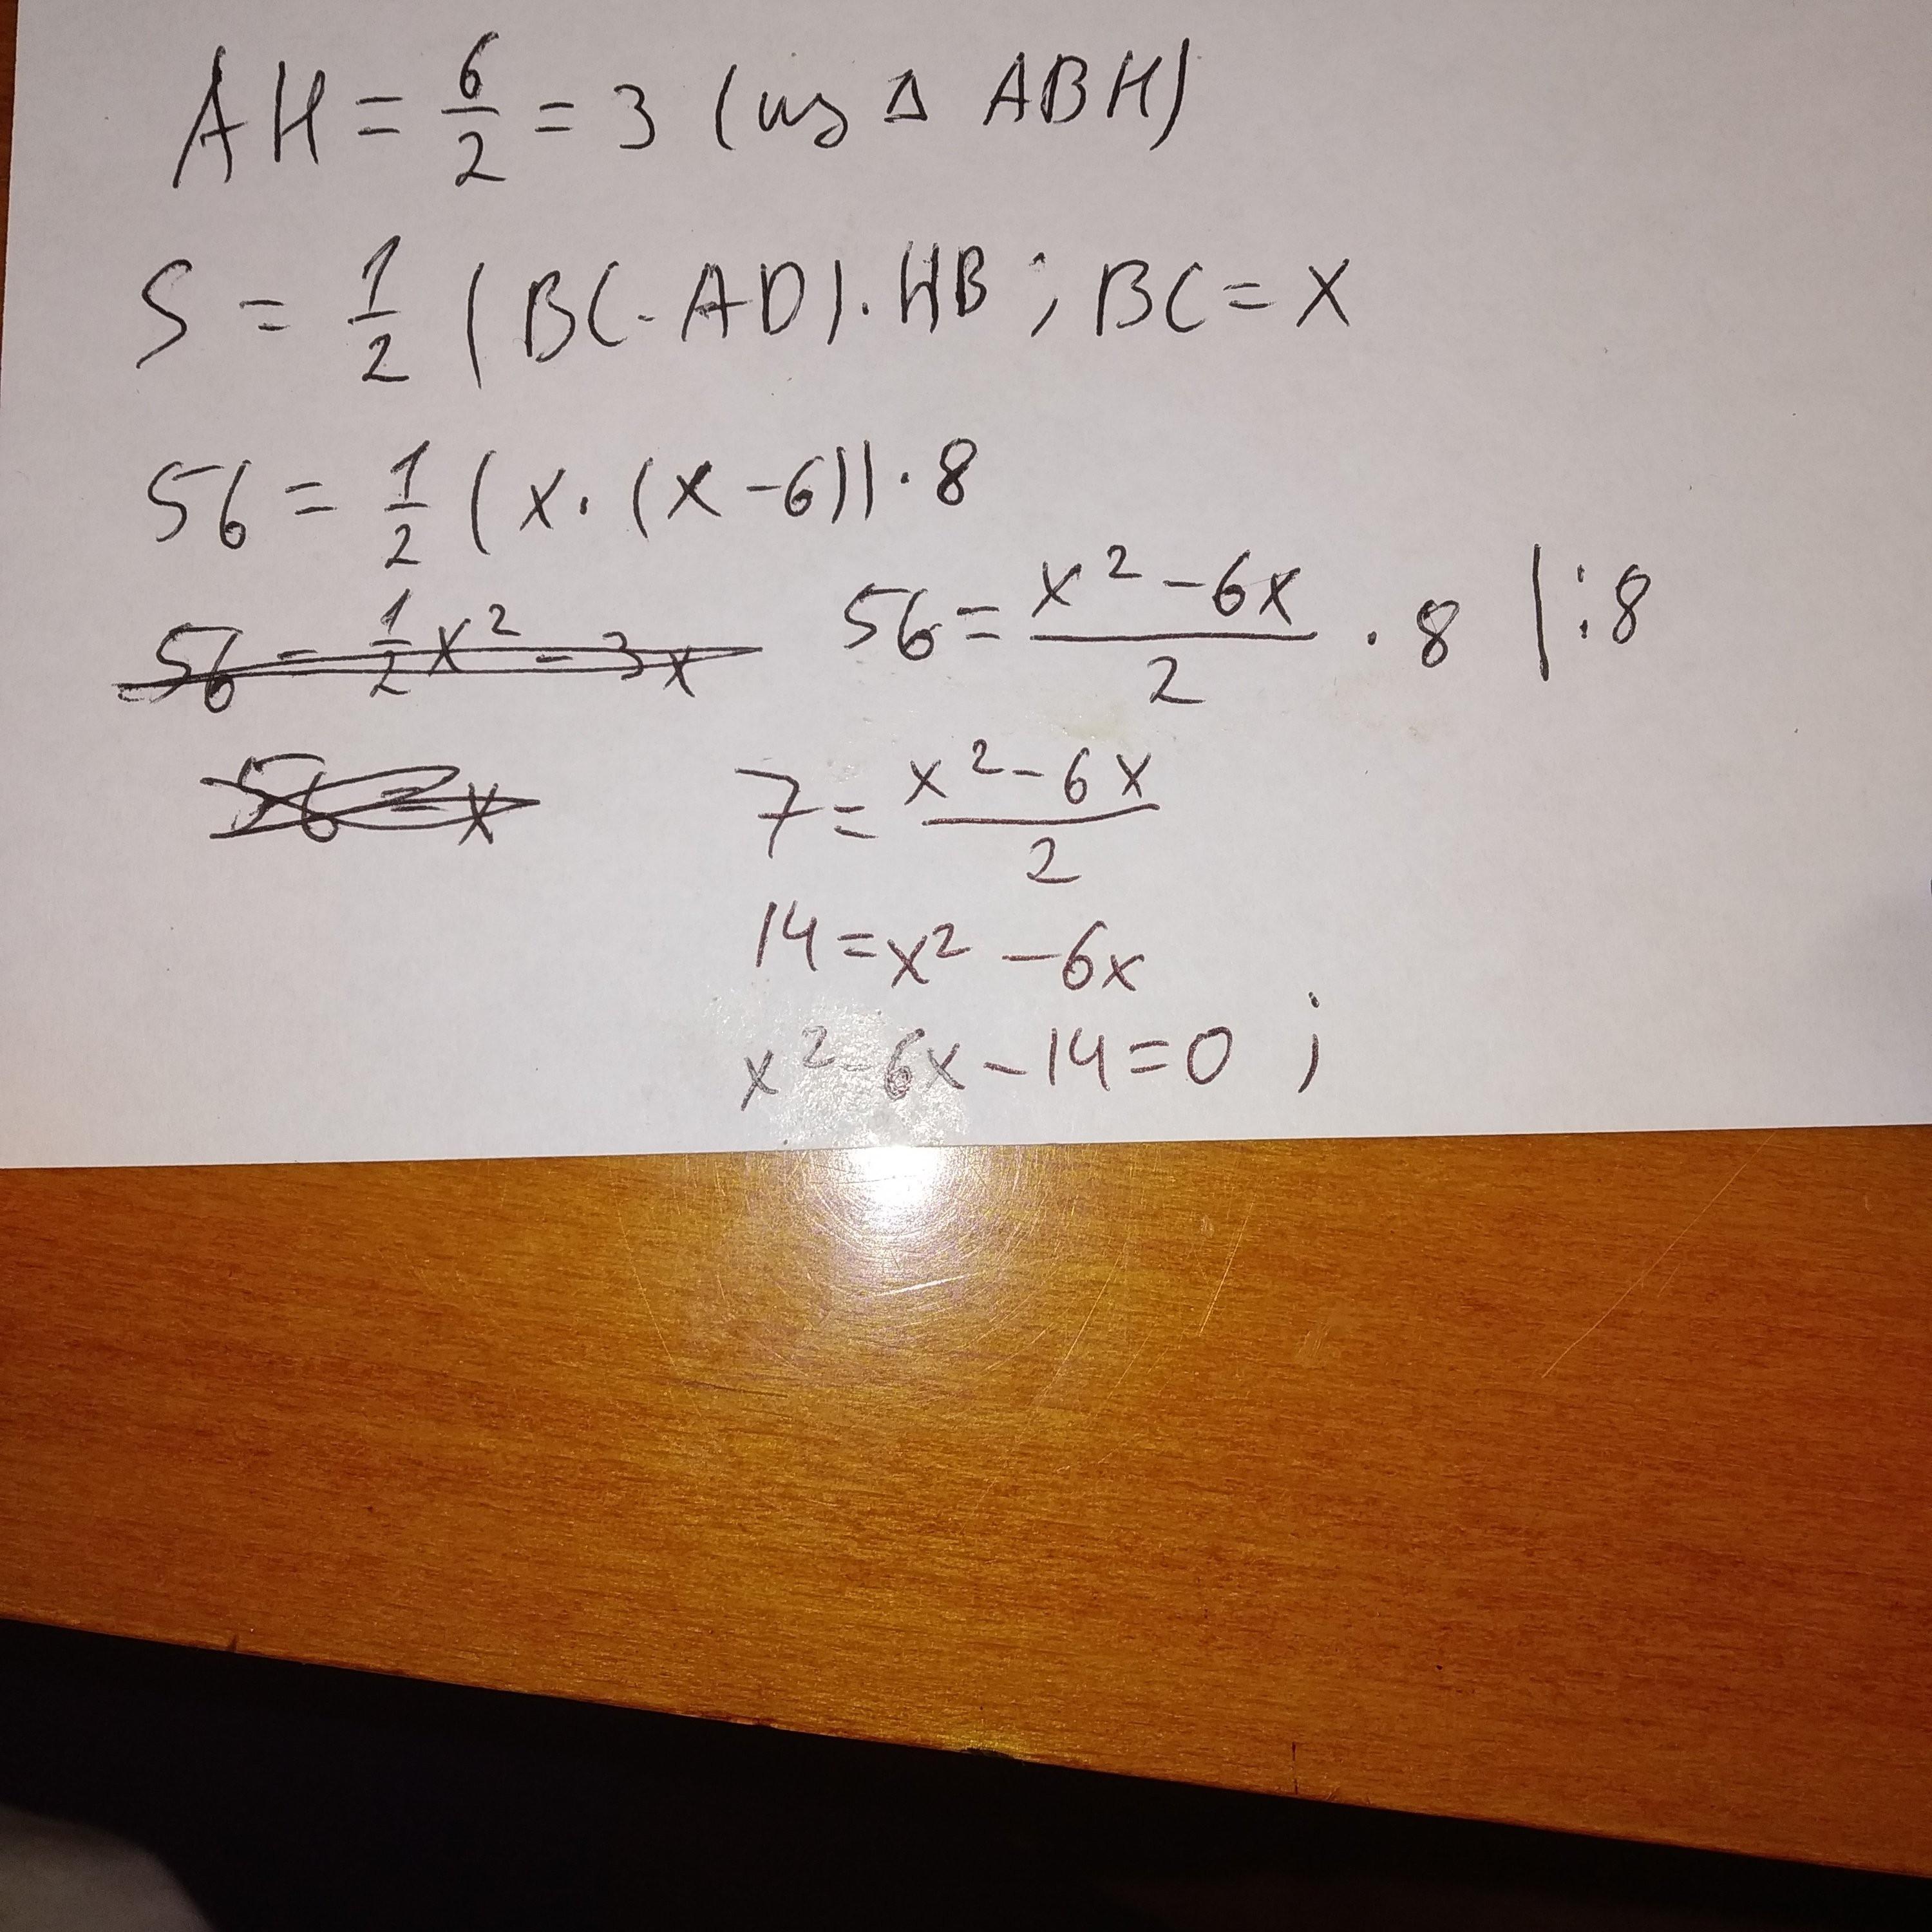 AH = 6/2 = 3 (из Δ ABH)
S = 1/2 (BC · AD) · HB ; BC = x
56 = 1/2 (x · (x - 6)) · 8
56 = 1/2 x² - 3x
56 = (x² - 6x)/2 · 8 | : 8
56 = x
7 = (x² - 6x)/2
14 = x² - 6x
x² - 6x - 14 = 0 ;